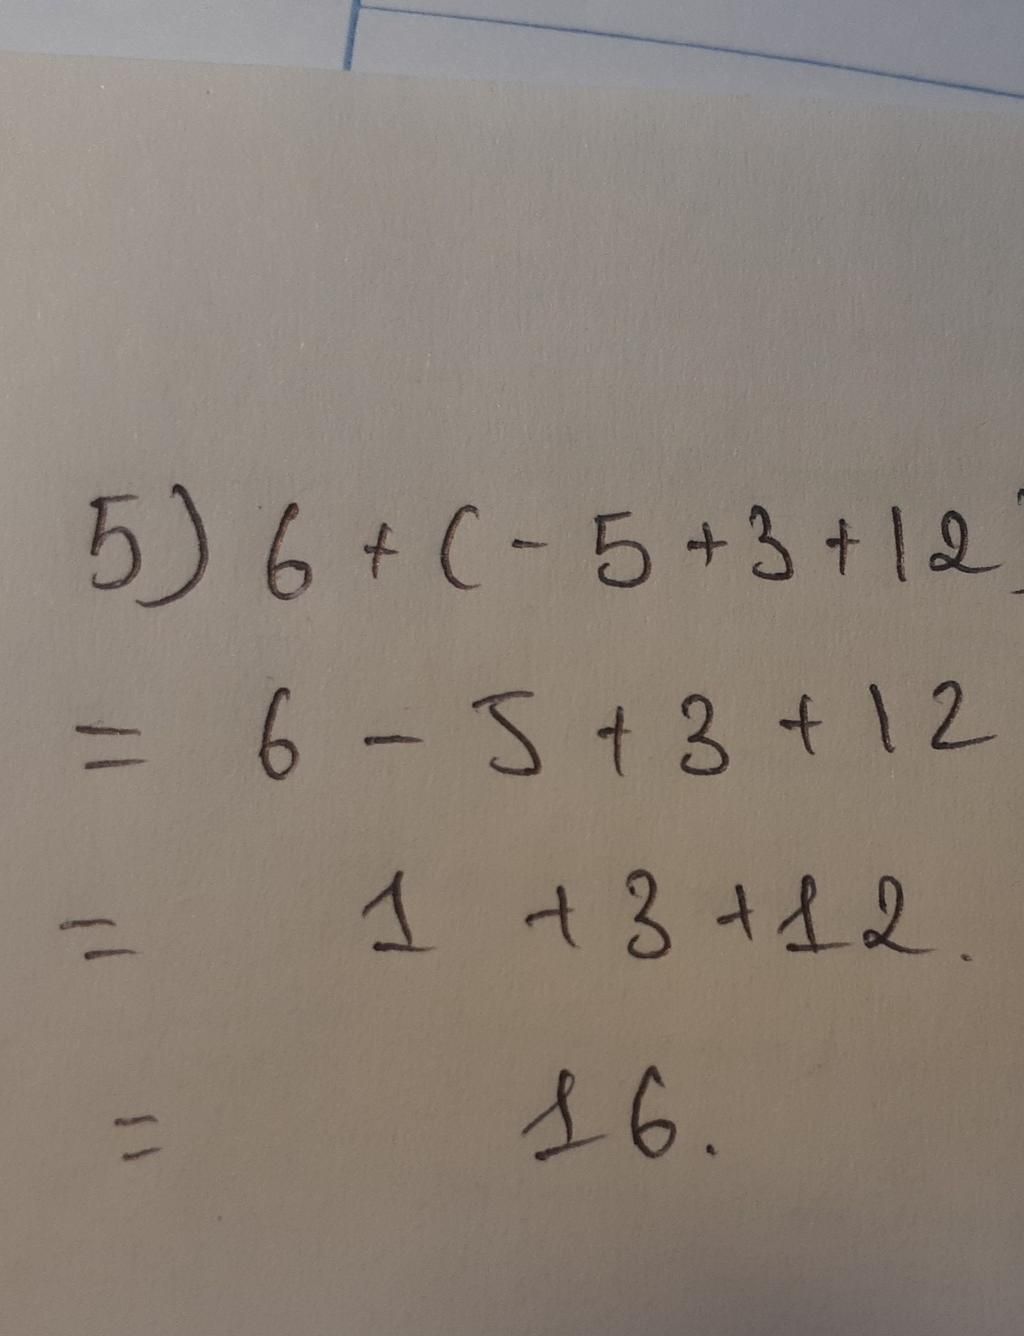 5) 6 + (- 5 + 3 + 12)
= 6 - 5 + 3 + 12
= 1 + 3 + 12.
= 16.